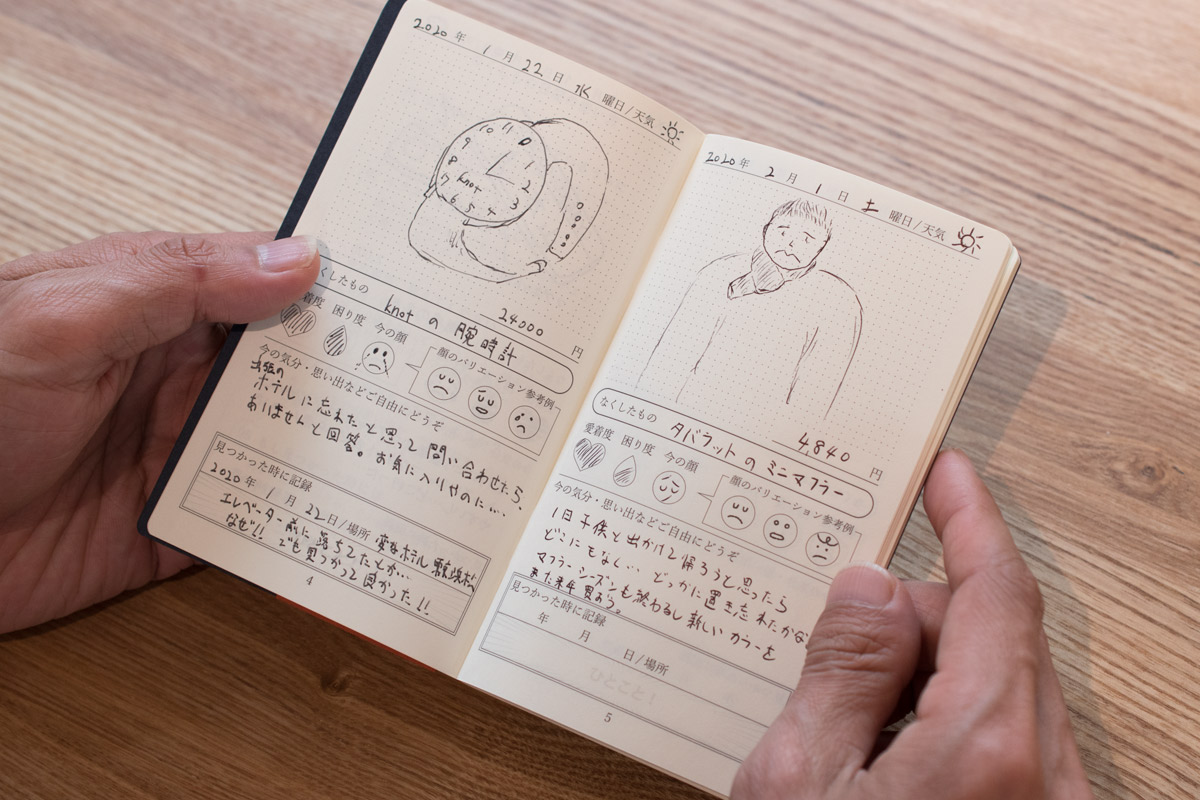 2020年 1月 22日 水 曜日/天気
10 11 0 1
9 2
8 knot 3
7 6 5 4
24000 円
くしたもの knot の 腕時計
着度 困り度 今の顔
顔のバリエーション参考例
今の気分・思い出などご自由にどうぞ
ホテルに忘れたと思って問い合わせたら、
ありませんと回答。お気に入りやのに...
見つかった時に記録
2020年 1月 22日/場所 変なホテル
エレベーター前に落ちてたとか...
なぜ!! でも見つかって良かった!!
4
2020年 2月 1日 土 曜日/天気
4,840 円
なくしたもの タバラットのミニマフラー
愛着度 困り度 今の顔
顔のバリエーション参考例
今の気分・思い出などご自由にどうぞ
1日子供と出かけて帰ろうと思ったら
どこにもない... どっかに置き忘れたかな
マフラーシーズンも終わるし新しいカラーを
また来年買おう。
見つかった時に記録
年 月 日/場所
ひとこと!
5